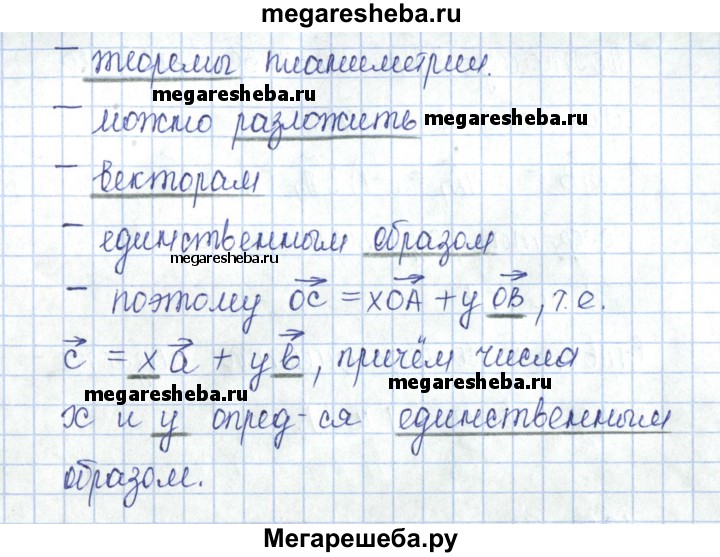 megaresheba.ru
– теоремы планиметрии.
megaresheba.ru
– можно разложить megaresheba.ru
– векторам
– единственным образом
megaresheba.ru
– поэтому OC = xOA + y OB, т.е.
c = x a + y b, причём числа
megaresheba.ru megaresheba.ru
x и y опред-ся единственным
образом.
Мегарешеба.ру